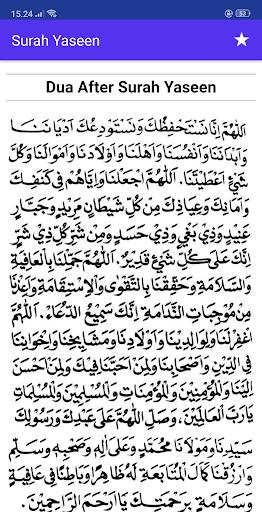 15.24
52
Surah Yaseen
Dua After Surah Yaseen
اَللّٰهُمَّ اِنَّا نَسْتَحْفِظُكَ وَنَسْتَوْدِعُكَ اَدْيَانَنَا
وَاَبْدَانَنَا وَاَنْفُسَنَا وَاَهْلَنَا وَاَوْلَادَنَا وَاَمْوَالَنَا وَكُلَّ
شَيْءٍ اَعْطَيْتَنَا. اَللّٰهُمَّ اجْعَلْنَا وَاِيَّاهُمْ فِي كَنَفِكَ
وَاَمَانِكَ وَعِيَاذِكَ مِنْ كُلِّ شَيْطَانٍ مَرِيْدٍ وَجَبَّارٍ
عَنِيْدٍ وَذِيْ بَغْيٍ وَذِيْ حَسَدٍ وَمِنْ شَرِّ كُلِّ ذِيْ شَرٍّ
اِنَّكَ عَلٰى كُلِّ شَيْءٍ قَدِيْرٌ. اَللّٰهُمَّ جَمِّلْنَا بِالْعَافِيَةِ
وَالسَّلَامَةِ وَحَقِّقْنَا بِالتَّقْوٰى وَالْاِسْتِقَامَةِ وَاَعِذْنَا
مِنْ مُوْجِبَاتِ النَّدَامَةِ. اِنَّكَ سَمِيْعُ الدُّعَاءِ. اَللّٰهُمَّ
اغْفِرْلَنَا وَلِوَالِدِيْنَا وَاَوْلَادِنَا وَمَشَايِخِنَا وَاِخْوَانِنَا
فِي الدِّيْنِ وَاَصْحَابِنَا وَلِمَنْ اَحَبَّنَا فِيْكَ وَلِمَنْ اَحْسَنَ
اِلَيْنَا وَلِلْمُؤْمِنِيْنَ وَالْمُؤْمِنَاتِ وَالْمُسْلِمِيْنَ وَالْمُسْلِمَاتِ
يَارَبَّ الْعَالَمِيْنَ، وَصَلِّ اللّٰهُمَّ عَلٰى عَبْدِكَ وَرَسُوْلِكَ
سَيِّدِنَا وَمَوْلَانَا مُحَمَّدٍ وَعَلٰى اٰلِهِ وَصَحْبِهِ وَسَلِّمْ
وَارْزُقْنَا كَمَالَ الْمُتَابَعَةِ لَهُ ظَاهِرًا وَبَاطِنًا فِي عَافِيَةٍ
وَسَلَامَةٍ بِرَحْمَتِكَ يَااَرْحَمَ الرَّاحِمِيْنَ.